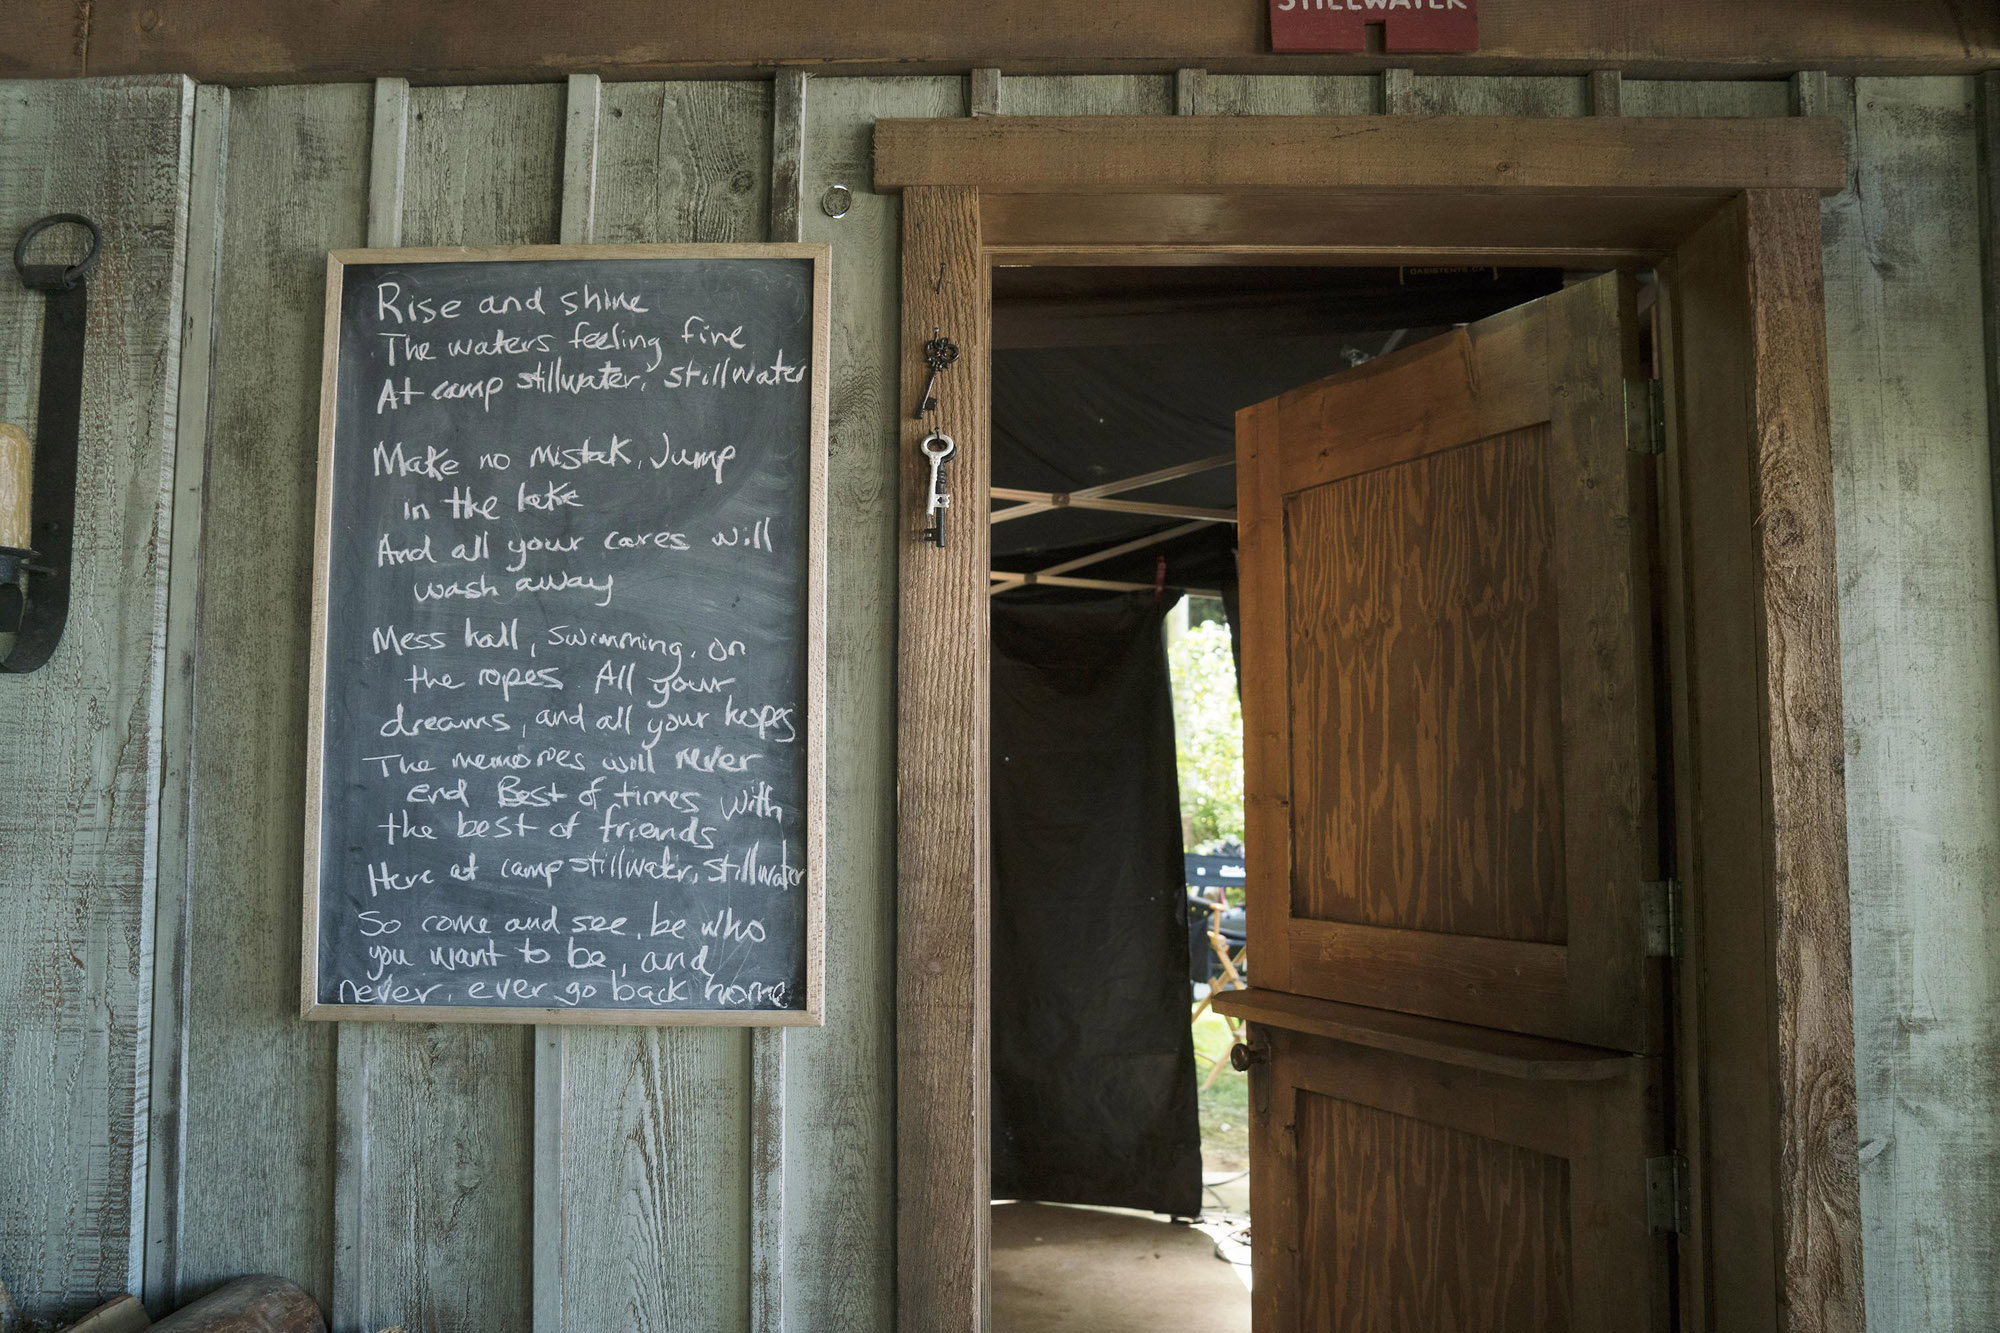 STILLWATER
OASISTENTS.CA
Rise and shine
The waters feeling fine
At camp stillwater, stillwater
Make no mistak, Jump
in the lake
And all your cares will
wash away
Mess hall, swimming, on
the ropes. All your
dreams, and all your hopes
The memories will never
end Best of times with
the best of friends
Here at camp stillwater, stillwater
So come and see, be who
you want to be, and
never, ever go back home